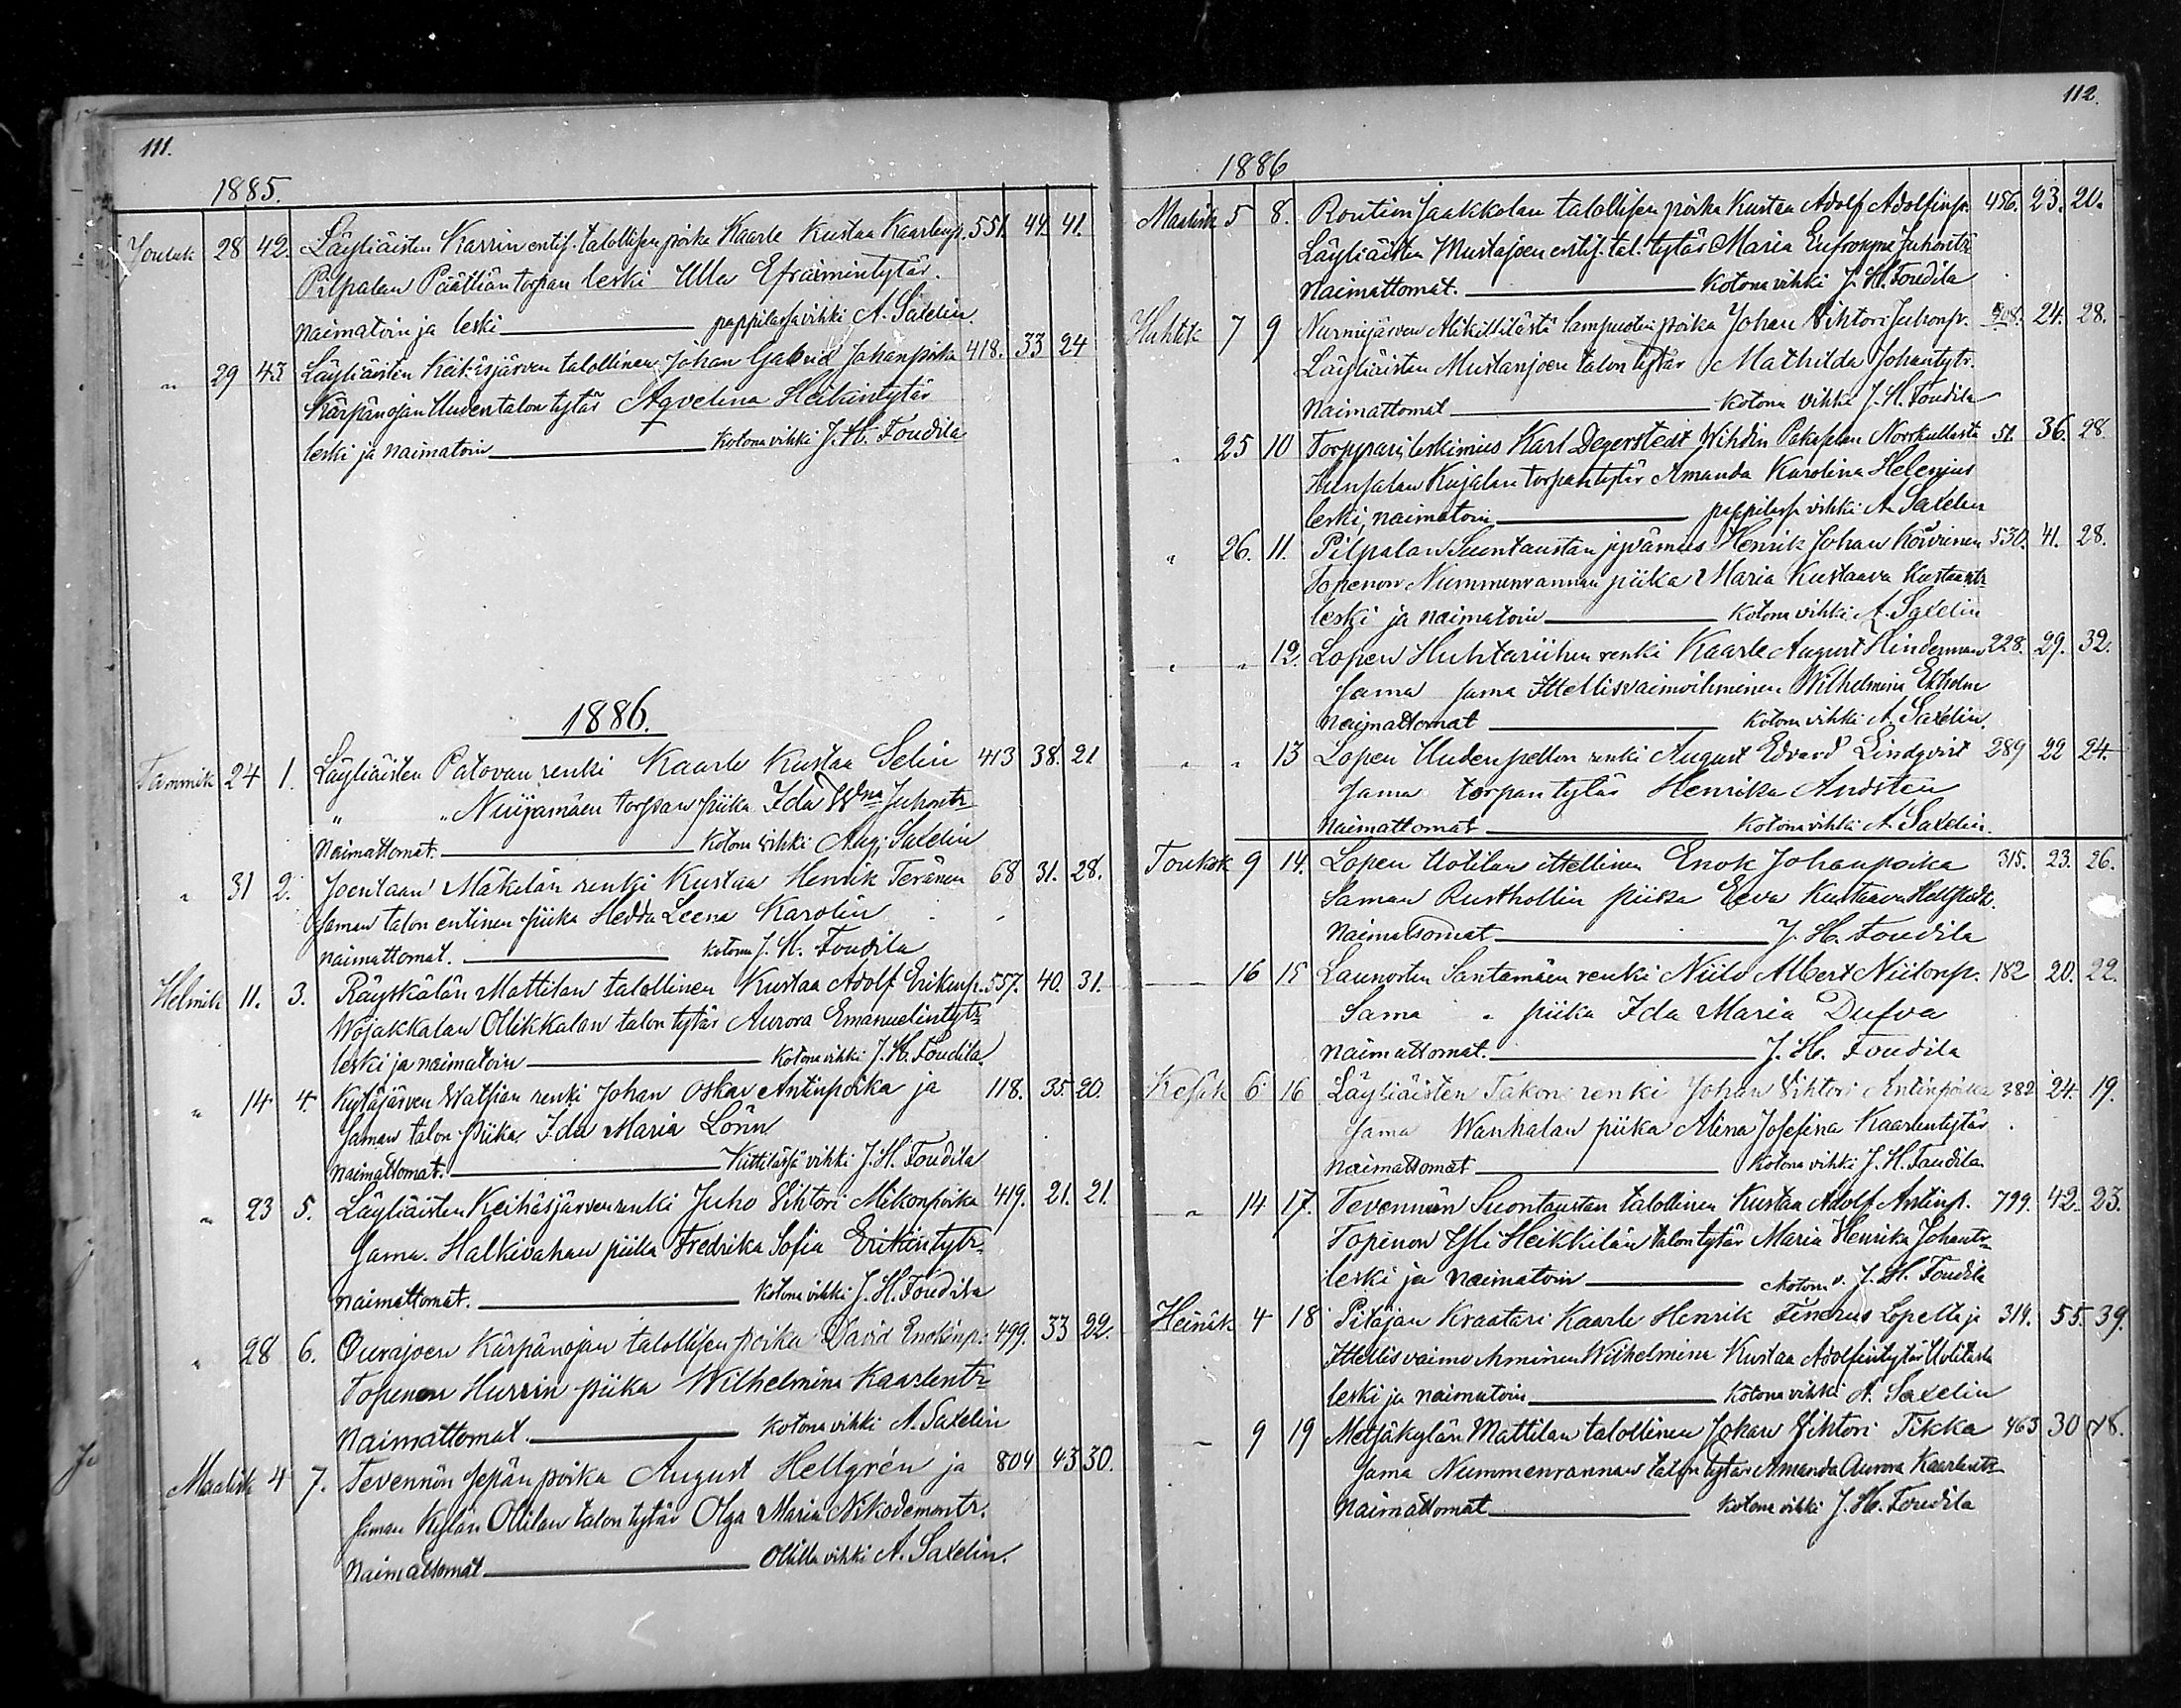 111.
1885.
Jouluk 28 42. Läyliäisten Karrin entis. talollisen poika Kaarle Kustaa Kaarlenp. 551. 44. 41.
Pilpalan Päätliän torpan leski Ulla Efraimintytär.
naimatoin ja leski — pappilassa vihki A. Saxelin.
" 29 43 Läyliäisten Keihäsjärven talollinen Johan Gabriel Johanpoika 418. 33 24
Kärpänojan Uudentalon tytär Aqvelina Heikintytär
leski ja naimatoin — Kotona vihki J. H. Foudila
1886.
Tammik 24 1. Läyliäisten Patovan renki Kaarle Kustaa Selin 413 38. 21
" " Niijamäen torpan piika Ida Wna Juhontr
Naimattomat. — Kotona vihki Aug. Saxelin
" 31 2. Joentaan Mäkelän renki Kustaa Henrik Teränen 68 31. 28.
Saman talon entinen piika Hedda Leena Karolin
naimattomat. — kotona J. H. Foudila
Helmik 11. 3. Räyskälän Mattilan talollinen Kustaa Adolf Erikinp. 557. 40. 31.
Wojakkalan Ollikkalan talon tytär Aurora Emanuelintytr
leski ja naimatoin — Kotona vihki J. H. Foudila
" 14 4. Kytäjärven Wathian renki Johan Oskar Antinpoika ja 118. 35. 20.
Saman talon piika Ida Maria Lönn
naimattomat. — Kittilässä vihki J. H. Foudila
" 23 5. Läyliäisten Keihäsjärven renki Juho Vihtori Mikonpoika 419. 21. 21.
Sama. Halkivahan piika Fredrika Sofia Erikintytr
naimattomat. — Kotona vihki J. H. Foudila
" 28 6. Ourajoen Kärpänojan talollisen poika David Enokinp. 499. 33 22.
Topenon Hurrin piika Wilhelmina Kaarlentr
Naimattomat. — Kotona vihki A. Saxelin
Maalisk 4 7. Tevennön sepän poika August Hellgrén ja 804 43 30.
Saman Kylän Ollilan talon tytär Olga Maria Nikodemontr.
Naimattomat — Ollilla vihki A. Saxelin.
112.
1886
Maalisk 5 8. Roution Jaakkolan talollisen poika Kustaa Adolf Adolfinp. 456. 23. 20.
Läyliäisten Mustajoen entis. tal. tytär Maria Eufrosyne Juhontr
Naimattomat. — Kotona vihki J. H. Foudila
Huhtik 7 9 Nurmijärven Alikittilästä lampuotin poika Johan Vihtori Juhonp. 24. 28.
Läyliäisten Mustanjoen talon tytär Mathilda Johantytr.
Naimattomat — Kotona vihki J. H. Foudila
" 25 10 Torppari, leskimies Karl Degerstedt Wihdin Pakaslan Norrkullasta 51. 36. 28.
Hunsalan Kujalan torpan tytär Amanda Karolina Helenius
leski, naimatoin — pappilass vihki A. Saxelin
" 26. 11. Pilpalan Suontaustan jyvämies Henrik Johan Koivunen 530. 41. 28.
Topenon Nummenrannan piika Maria Kustaava Kustaantr
leski ja naimatoin — Kotona vihki A. Saxelin
" " 12. Lopen Huhtariihen renki Kaarle August Hinderman 228. 29. 32.
Sama Sama Ittellisvaimoihminen Wilhelmina Ekholm
Naimattomat — Kotona vihki A. Saxelin.
" " 13 Lopen Uudenpellon renki August Edvard Lindqvist 289 22 24.
Sama torpan tytär Henrika Andsten
Naimattomat — Kotona vihki A. Saxelin.
Toukok 9 14. Lopen Uotilan ittellinen Enok Johanpoika 315. 23. 26.
Saman Rusthollin piika Eeva Kustaava Hellstedt.
Naimattomat — J. H. Foudila
— 16 15 Launosten Santamäen renki Niilo Albert Niilonp. 182 20. 22.
Sama " piika Ida Maria Dufva
Naimattomat. — J. H. Foudila
Kesäk 6 16 Läyliäisten Takon renki Johan Vihtori Antinpoika 382 24. 19.
Sama Wanhalan piika Alina Josefina Kaarlentytär
Naimattomat — Kotona vihki J. H. Foudila
" 14 17. Tevennön Suontaustan talollinen Kustaa Adolf Antinp. 799. 42. 23.
Topenon Yli Heikkilän talon tytär Maria Henrika Johantr
leski ja naimatoin — Kotona v. J. H. Foudila
Heinäk 4 18 Pitäjän Kraatari Kaarle Henrik Lopelta ja 319. 55. 39.
Ittellisvaimo ihminen Wilhelmina Kustaa Adolfintytär Uotilasta
leski ja naimatoin — Kotona vihki A. Saxelin
— 9 19 Metsäkylän Mattilan talollinen Johan Vihtori Tikka 463 30 18.
Sama Nummenrannan talon tytär Amanda Aurora Kaarlentr
Naimattomat — Kotona vihki J. H. Foudila